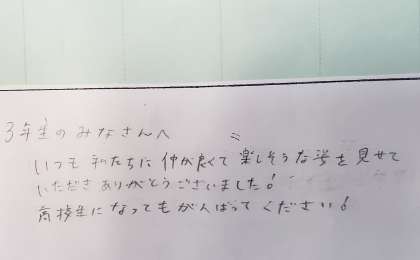 3年生のみなさんへ
いつも私たちに仲が良くて楽しそうな姿を見せて
いただきありがとうございました!
高校生になってもがんばってください!